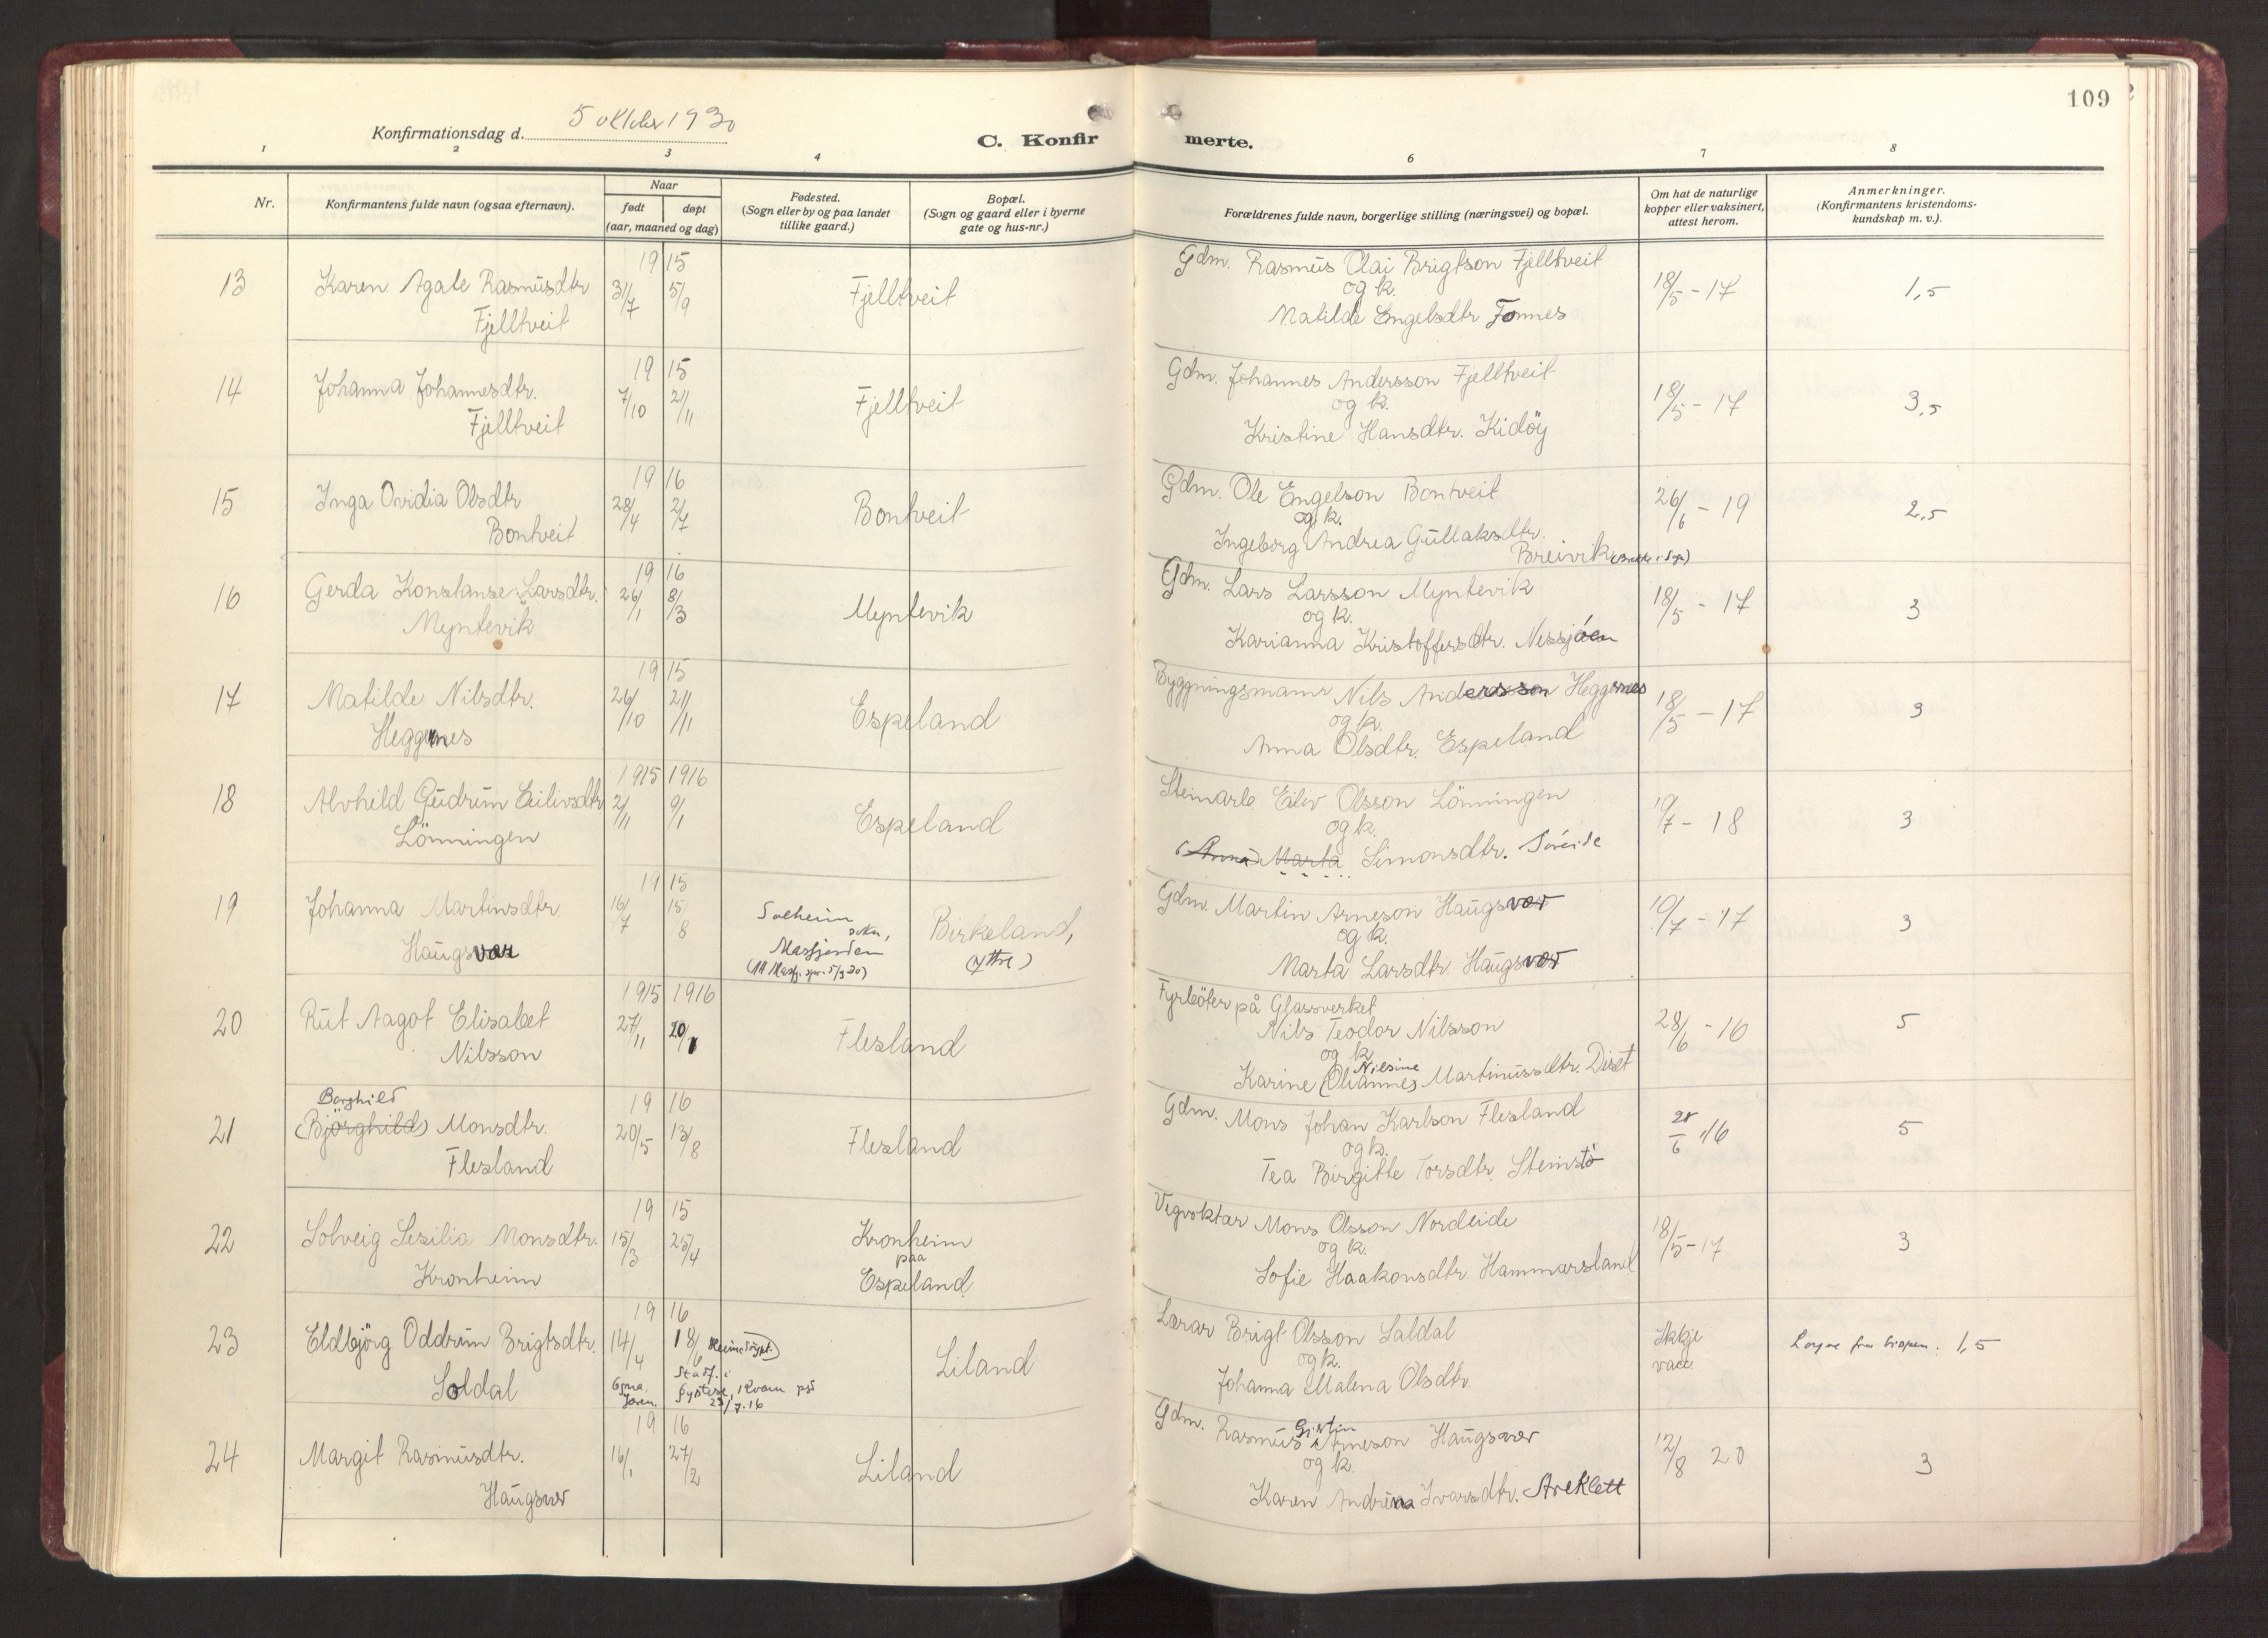 109
Konfirmationsdag d. 5 oktober 1930
C. Konfirmerte.
1 2 3 4 6 7 8
Nr.
Konfirmantens fulde navn (ogsaa efternavn).
Naar
født døpt
(aar, maaned og dag)
Fødested.
(Sogn eller by og paa landet
tillike gaard.)
Bopæl.
(Sogn og gaard eller i byerne
gate og hus-nr.)
Forældrenes fulde navn, borgerlige stilling (næringsvei) og bopæl.
Om hat de naturlige
kopper eller vaksinert,
attest herom.
Anmerkninger.
(Konfirmantens kristendoms-
kundskap m. v.).
13 Karen Agate Rasmusdtr
Fjelltveit
19 15
31/7 5/9
Fjelltveit
Gdm. Rasmus Olai Brigtson Fjelltveit
og k.
Matilde Engelsdtr Fonnes
18/5 - 17
1,5
14 Johanna Johannesdtr.
Fjelltveit
19 15
7/10 21/11
Fjelltveit
Gdm. Johannes Andersson Fjelltveit
og k.
Kristine Hansdtr. Kidöy
18/5 - 17
3,5
15 Inga Ovidia Olsdtr
Bontveit
19 16
28/4 2/7
Bontveit
Gdm. Ole Engelson Bontveit
og k.
Ingeborg Andrea Gullaksdtr.
Breivik
26/6 - 19
2,5
16 Gerda Konstanse Larsdtr.
Myntevik
19 16
26/1 8/3
Myntevik
Gdm. Lars Larsson Myntevik
og k.
Karianna Kristoffersdtr. Nessjöen
18/5 - 17
3
17 Matilde Nilsdtr.
Heggenes
19 15
26/10 21/11
Espeland
Byggningsmann Nils Andersson Heggernes
og k.
Anna Olsdtr. Espeland
18/5 - 17
3
18 Alvhild Gudrun Eilivsdtr
Lönningen
1915 1916
2/11 9/1
Espeland
Steinarb. Eiliv Olsson Lönningen
og k.
(Anna) Marta Simonsdtr. Söreide
19/7 - 18
3
19 Johanna Martinsdtr.
Haugsvær
19 15
16/7 15/8
Solheim
sokn,
Masfjorden
Birkeland,
(Ytre)
Gdm. Martin Arneson Haugsvær
og k.
Marta Larsdtr. Haugsvær
19/7 - 17
3
20 Rut Aagot Elisabet
Nilsson
1915 1916
27/11 20/1
Flesland
Fyrböter på Glassverket
Nils Teodor Nilsson
og k.
Nilsine
Karine (Olianne) Martinusdtr. Diset
28/6 - 16
5
21 Borghild
(Björghild) Monsdtr.
Flesland
19 16
20/5 13/8
Flesland
Gdm. Mons Johan Karlson Flesland
og k.
Tea Birgitte Torsdtr. Steinstö
28/6 16
5
22 Solveig Sesilia Monsdtr.
Kronheim
19 15
15/3 25/4
Kronheim
paa
Espeland
Vegvoktar Mons Olsson Nordeide
og k.
Sofie Haakonsdtr. Hammarsland
18/5 - 17
3
23 Eldbjörg Oddrun Brigtsdtr.
Soldal
19 16
14/4 18/6 Heimedöypt.
Stadf. i
Öystese, Kvam på
23/7.16
Liland
Lærar Brigt Olsson Saldal
og k.
Johanna Malena Olsdtr.
Ikkje
vacc
1,5
24 Margit Rasmusdtr.
Haugsvær
19 16
16/1 27/2
Liland
Gdm. Rasmus Arneson Haugsvær
og k.
Karen Andrina Ivarsdtr. Areklett
12/8 20
3